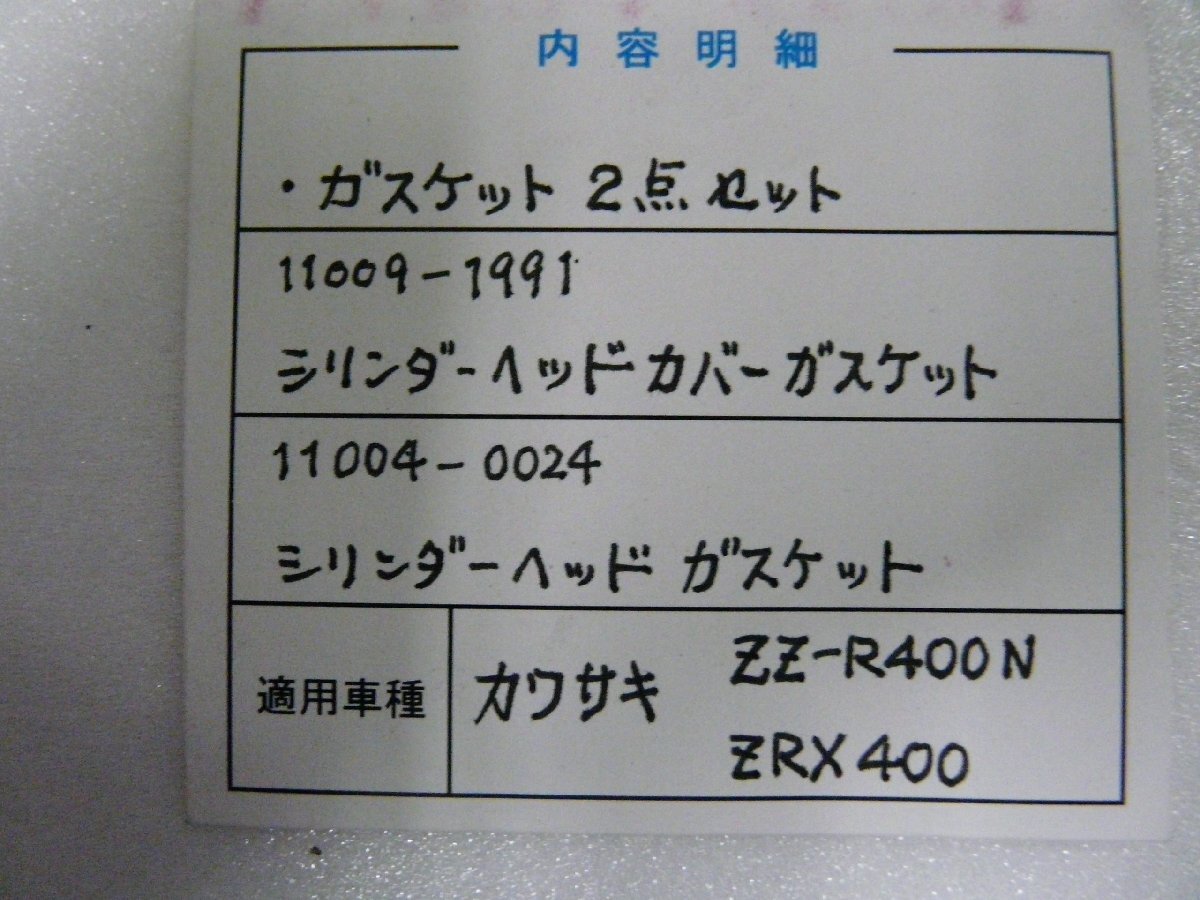 内容明細
・ガスケット 2点セット
11009-1991
シリンダーヘッドカバーガスケット
11004-0024
シリンダーヘッド ガスケット
適用車種 カワサキ ZZ-R400N
ZRX400